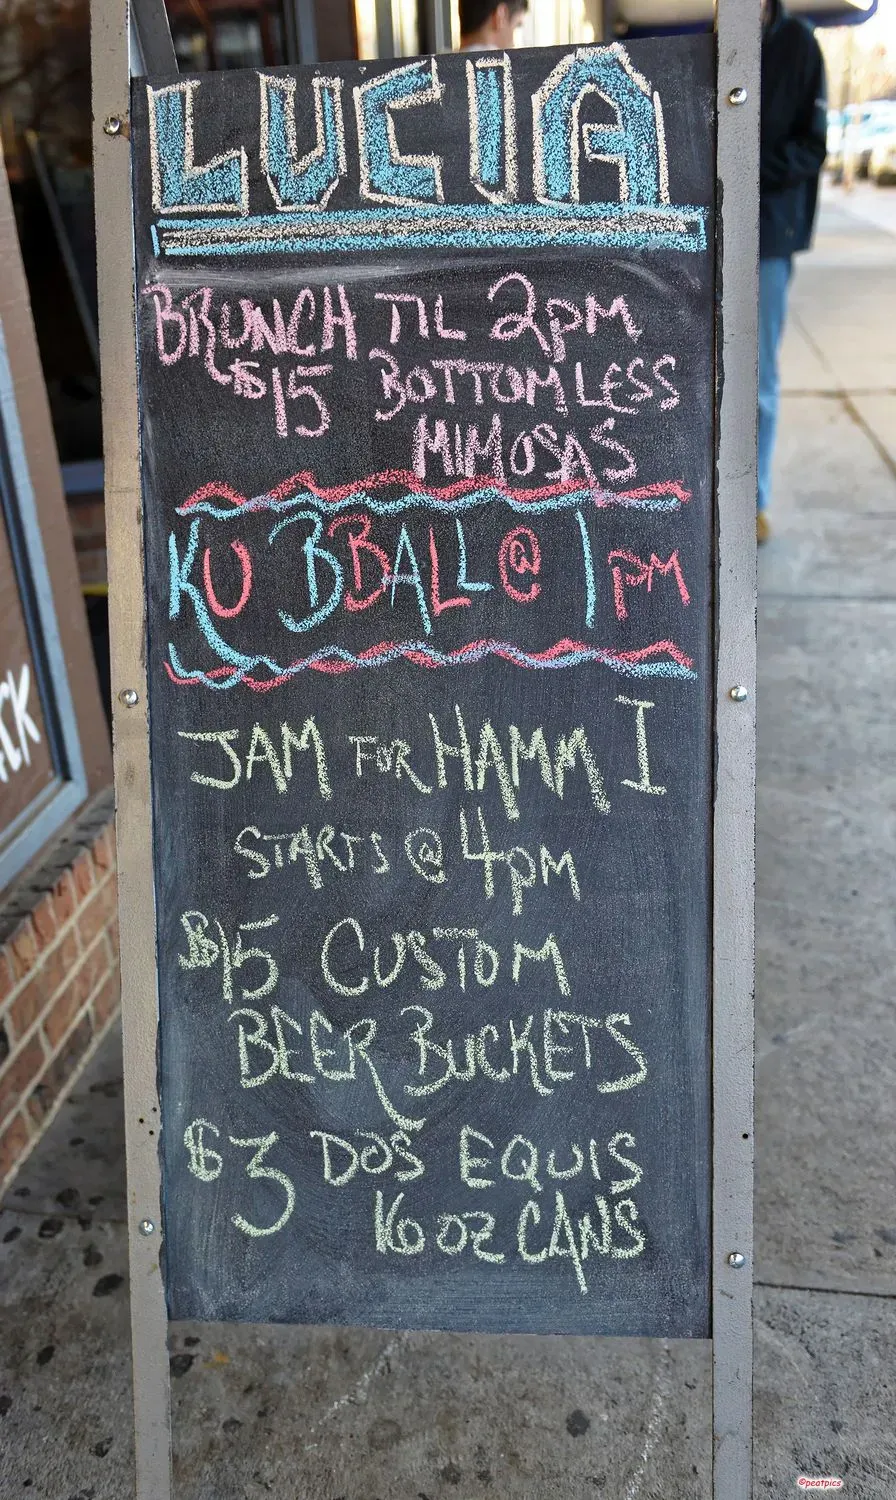 LUCIA
BRUNCH TIL 2PM
$15 BOTTOMLESS
MIMOSAS
KU BBALL @ 1PM
JAM FOR HAMM I
STARTS @ 4PM
$15 CUSTOM
BEER BUCKETS
$3 DOS EQUIS
16 OZ CANS
CK
©peatpics